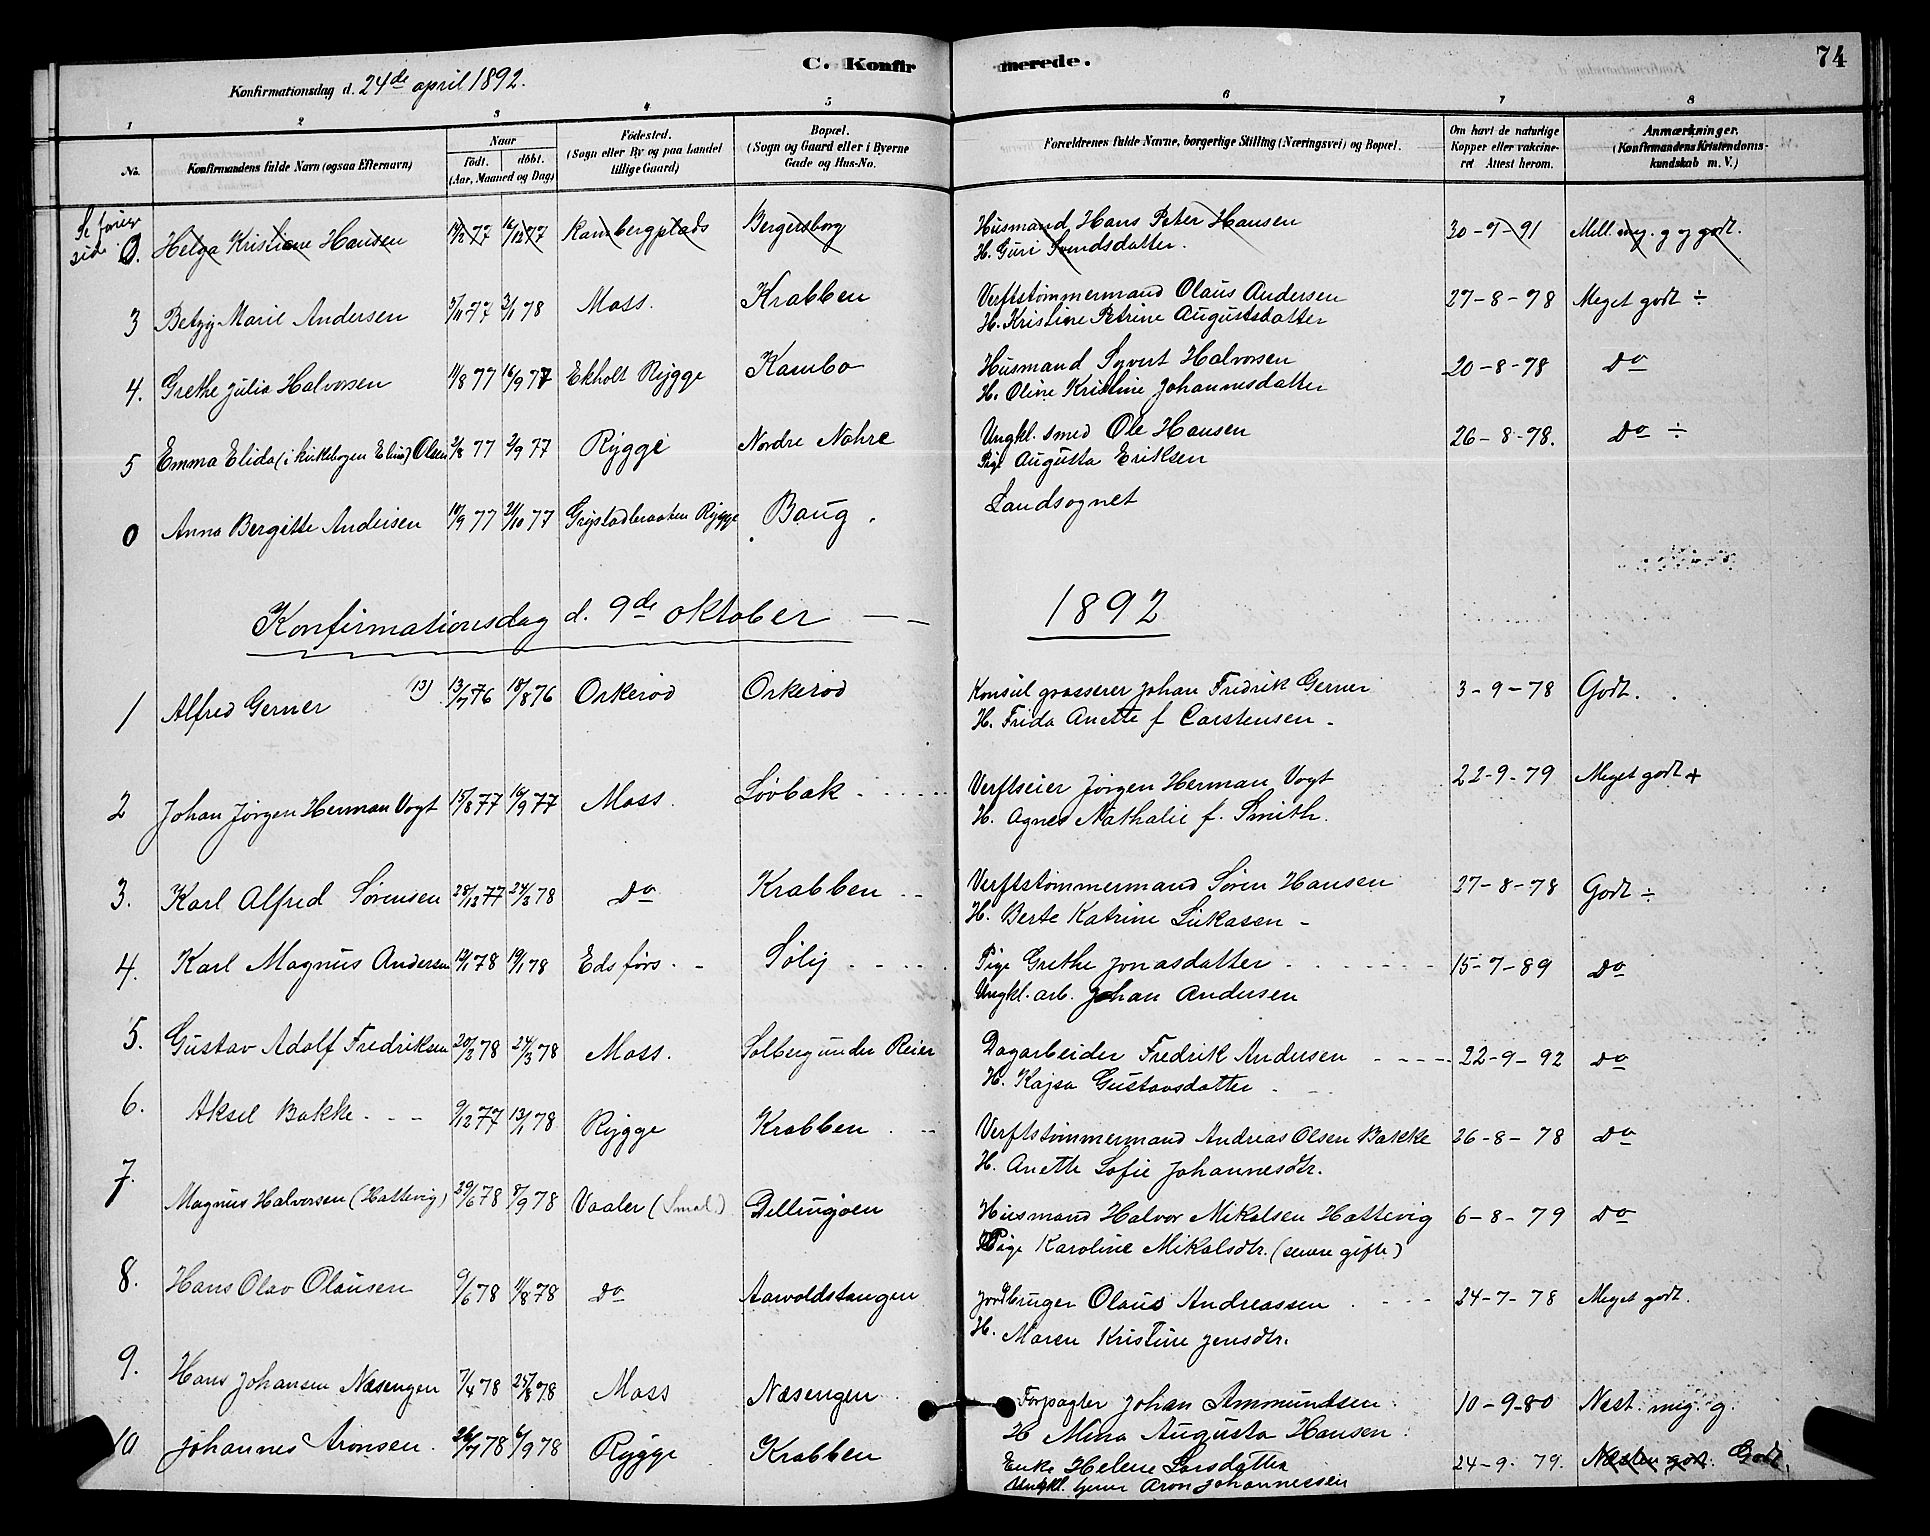 C. Konfirmerede.
74
Konfirmationsdag d. 24de april 1892.
1 2 3 4 5 6 7 8
No. Konfirmandens fulde Navn (ogsaa Efternavn) Naar født. døbt. (Aar, Maaned og Dag) Fødested. (Sogn eller By og paa Landet tillige Gaard) Bopæl. (Sogn og Gaard eller i Byerne Gade og Hus-No. Forældrenes fulde Navne, borgerlige Stilling (Næringsvei) og Bopæl. Om havt de naturlige Kopper eller vaccineret Attest herom. Anmærkninger. (Konfirmandens Kristendomskundskab m. V.)
Se forige side. 0. Helga Kristiane Hansen 77 16/12 77 Kambergplads Bergersborg Husmand Hans Peter Hansen 30-9-91 Mell. mg. g og godt.
H. Guri Svendsdatter.
3 Betzy Marie Andersen 5/11 77 3/1 78 Moss. Krabben Verftstømmermand Olaus Andersen 27-8-78 Meget godt ÷
H. Kristine Petrine Augustsdatter
4. Grethe Julia Halvorsen 11/8 77 16/9 77 Ekholt Rygge Kambo Husmand Syvert Halvorsen 20-8-78 Do
H. Oline Kristine Johannesdatter
5 Emma Elida (i kirkebogen Elina) Olsen 2/8 77 2/9 77 Rygge Nordre Nøhre Ungkl. smed Ole Hansen 26-8-78. Do ÷
Pige Augusta Eriksen
0 Anna Bergitte Andersen 10/9 77 21/10 77 Grystadbraaten Rygge Baug. Landsognet
Konfirmationsdag d. 9de oktober 1892
1 Alfred Gerner 13) 13/7 76 18/8 76 Orkerød Orkerød Konsul grosserer Johan Fredrik Gerner 3-9-78 Godt.
H. Frida Anette f Carstensen
2 Johan Jørgen Herman Vogt 15/8 77 16/9 77 Moss. Løvbak Verftseier Jørgen Herman Vogt 22-9-79 Meget godt +
H. Agnes Nathalie f. Smith.
3. Karl Alfred Sørensen 28/12 77 24/3 78 Do Krabben Verftstømmermand Søren Hansen 27-8-78 Godt ÷
H. Berte Katrine Lukasen
4. Karl Magnus Andersen 10/1 78 19/1 78 Edsfors. Søly Pige Grethe Jonasdatter 15-7-89 Do
Ungkl. arb. Johan Andersen
5. Gustav Adolf Fredriksen 20/2 78 24/3 78 Moss. Solberg under Reier Dagarbeider Fredrik Andersen 22-9-92 Do
H. Kajsa Gustavsdatter
6. Aksel Bakke 9/12 77 13/1 78 Rygge Krabben Verftstømmermand Andreas Olsen Bakke 26-8-78 Do
H. Anette Sofie Johannesdtr.
7. Magnus Halvorsen (Hattevig) 29/6 78 8/9 78 Vaaler (Smal.) Dillingøen Husmand Halvor Mikalsen Hattevig 6-8-79 Do
Pige Karoline Mikalsdtr. (senere gifte)
8. Hans Olav Olausen 9/6 78 11/8 78 Do Aarvoldstangen Jordbruger Olaus Andreassen 24-7-78 Meget godt.
H. Maren Kristine Jensdtr.
9. Hans Johansen Næsengen 7/4 78 25/8 78 Moss Næsengen Forpagter Johan Ammundsen 10-9-80 Næst. mig. g.
H Mina Augusta Hansen
10 Johannes Aronsen. 26/7 78 6/9 78 Rygge Krabben Enke Helene Larsdatter 24-9-79. Næsten godt. Godt.
Ungkl. tjener Aron Johannessen